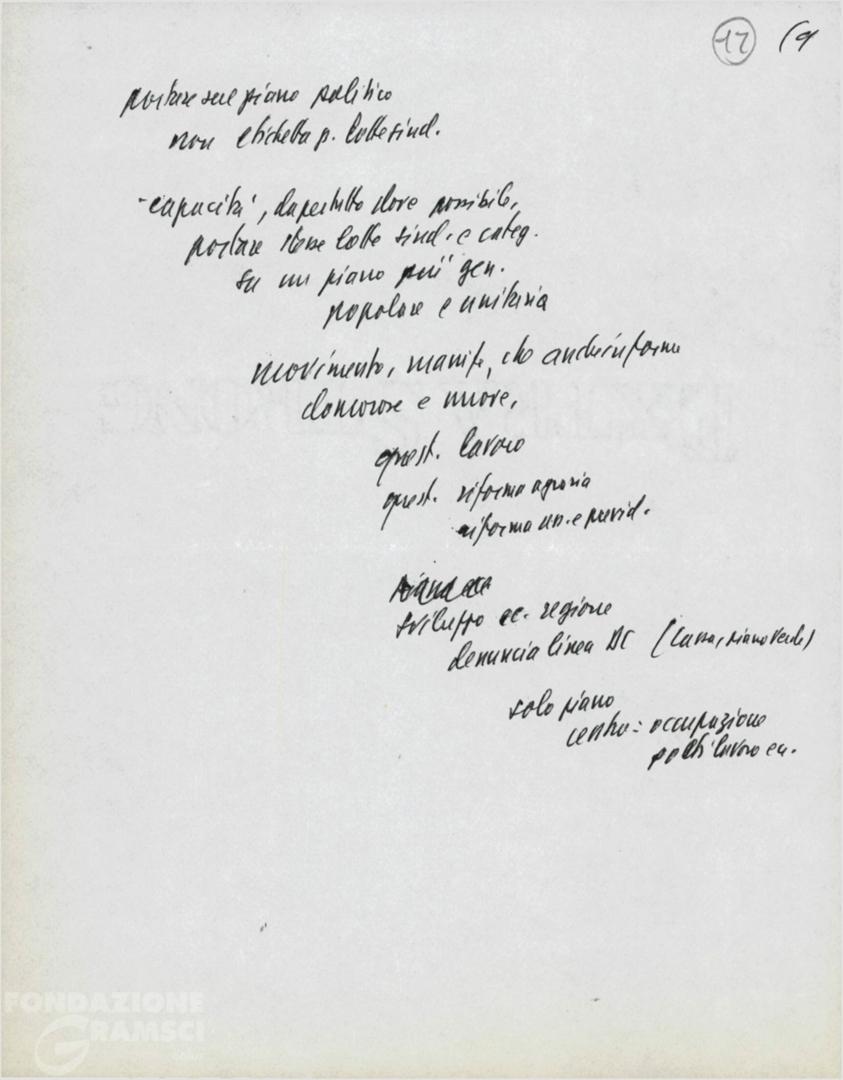 17 (9
portare sul piano politico
non etichetta p. lotte sind.
- capacità, dapertutto dove possibile,
portare stesse lotte sind. e categ.
su un piano più gen.
popolare e unitaria
movimento, manife, che anche in forme
clamorose e nuove,
quest. lavoro
quest. riforma agraria
riforma ass. e previd.
sviluppo ec. regione
denuncia linea DC (Cassa, piano verde)
solo piano
centro: occupazione
posti lavoro ecc.
FONDAZIONE
GRAMSCI